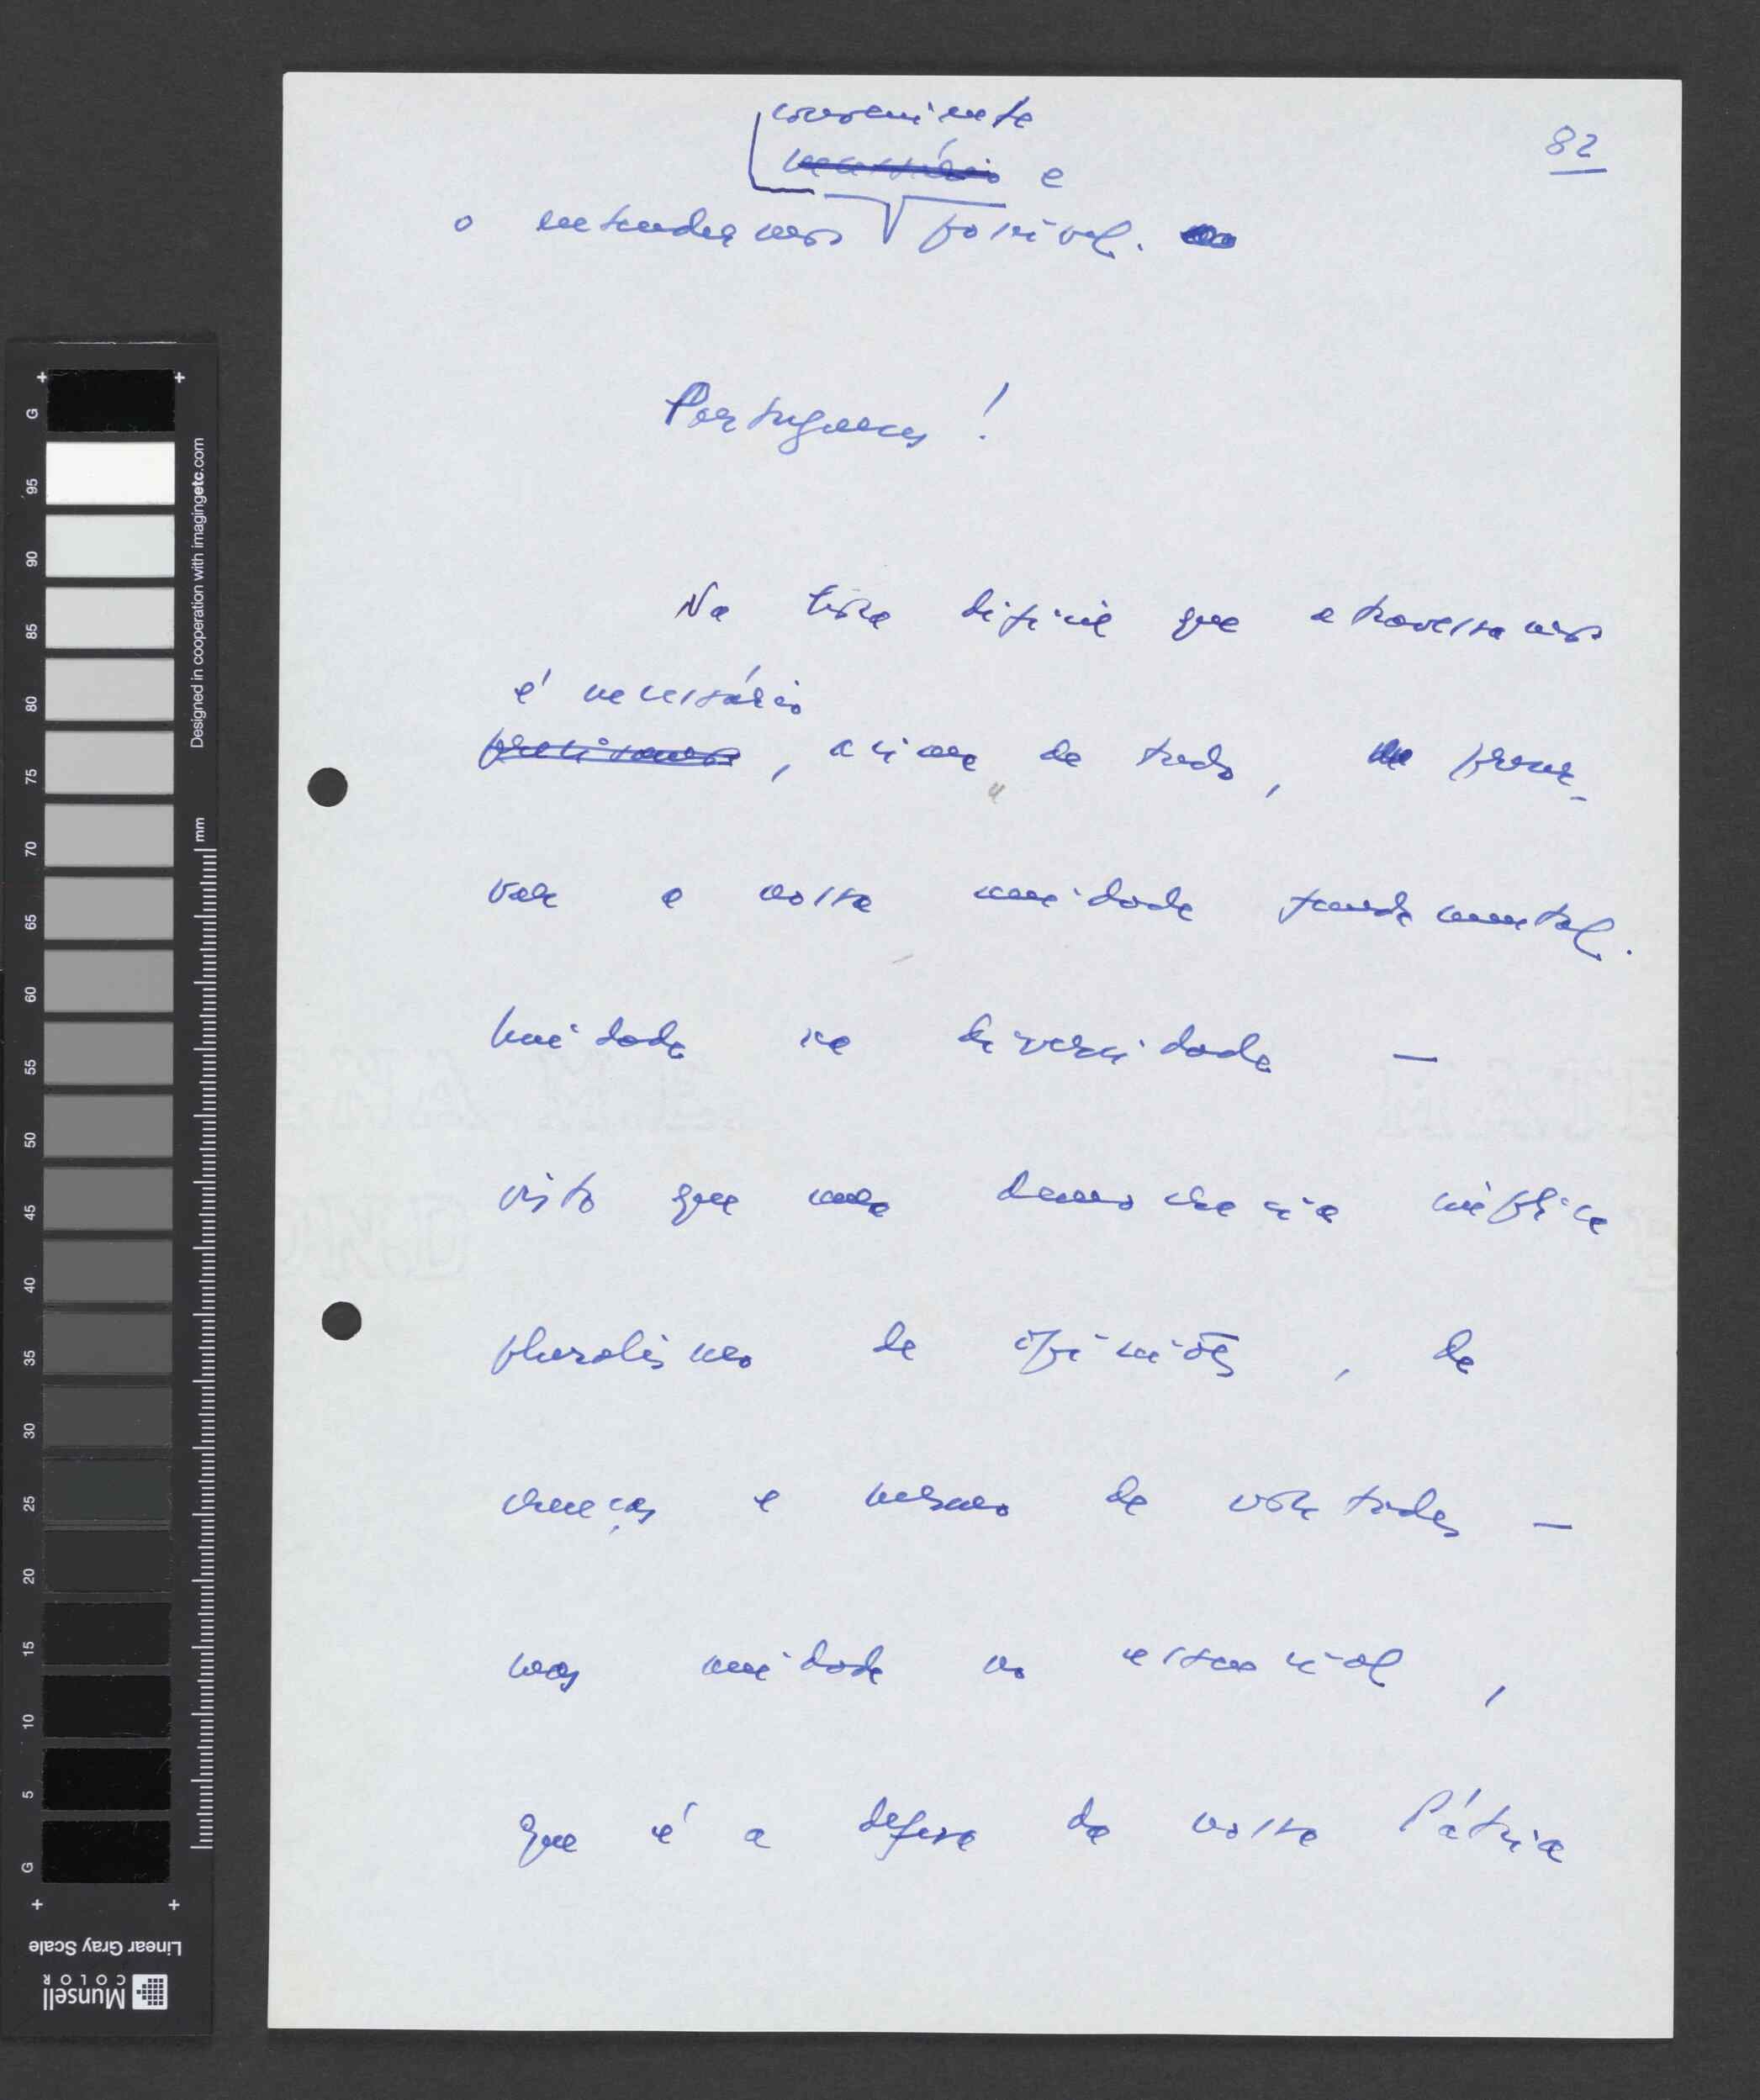 82
conveniente
necessário e
o entendermos possível.
Portugueses !
Na hora difícil que atravessamos
é necessário
precisamos, acima de tudo, de provar
var a nossa unidade fundamental.
Unidade na diversidade —
visto que uma democracia implica
pluralismo de opiniões, de
crenças e mesmo de vontades —
mas unidade no essencial,
que é a defesa da nossa Pátria
G 95 90 85 80 75 70 65 60 55 50 45 40 35 30 25 20 15 10 5 G
Designed in cooperation with imagingetc.com
mm
Linear Gray Scale
Munsell
COLOR